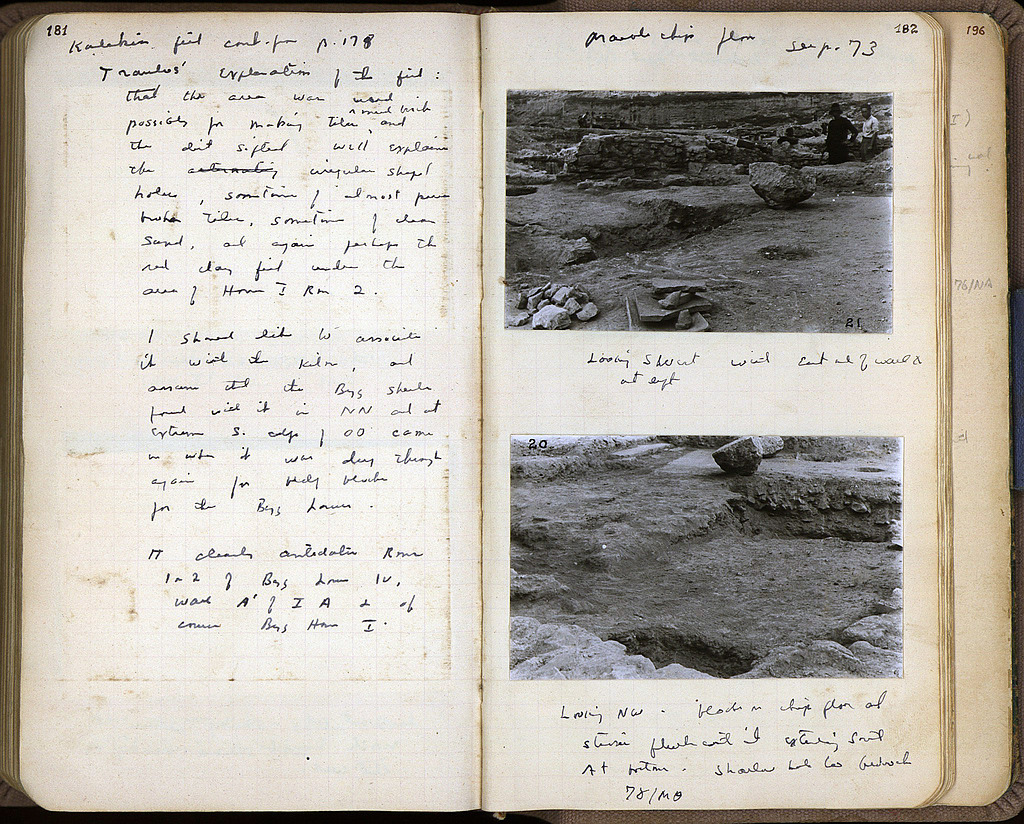 181
fill cont. from p. 178
Explanation of the fill:
that the area was used
possibly for making tiles, and
mud brick
the dirt sifted will explain
the irregular shaped
holes, sometimes of almost pure
broken tiles, sometimes of clean
sand, and again perhaps the
red clay fill under the
area of House I Rm 2.
I should like to associate
it with the kiln, and
assume that the Byz sherds
found with it in NN and at
extreme S. edge of OO came
in when it was dug through
again for blocks
for the Byz houses.
It clearly antedates Rooms
1 & 2 of Byz House IV,
wall A' of I A & of
course Byz House I.
182
Marble chip floor see p. 73
21
Looking SWest with East end of wall
at left
20
Looking NW. block on chip floor and
extending South
At bottom. Shallow hole bedrock
78/ΜΘ
196
I)
76/ΝΛ